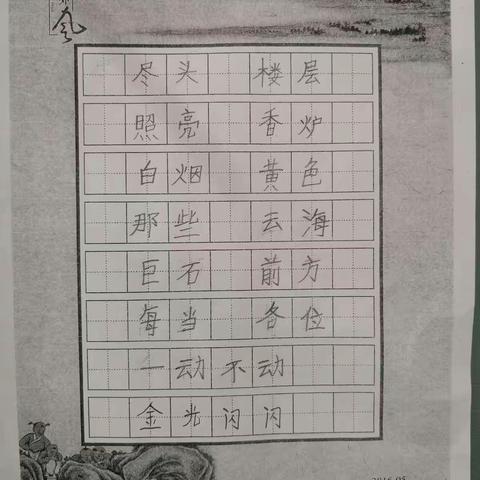 风
尽头 楼层
照亮 香炉
白烟 黄色
那些 云海
巨石 前方
每当 各位
一动不动
金光闪闪